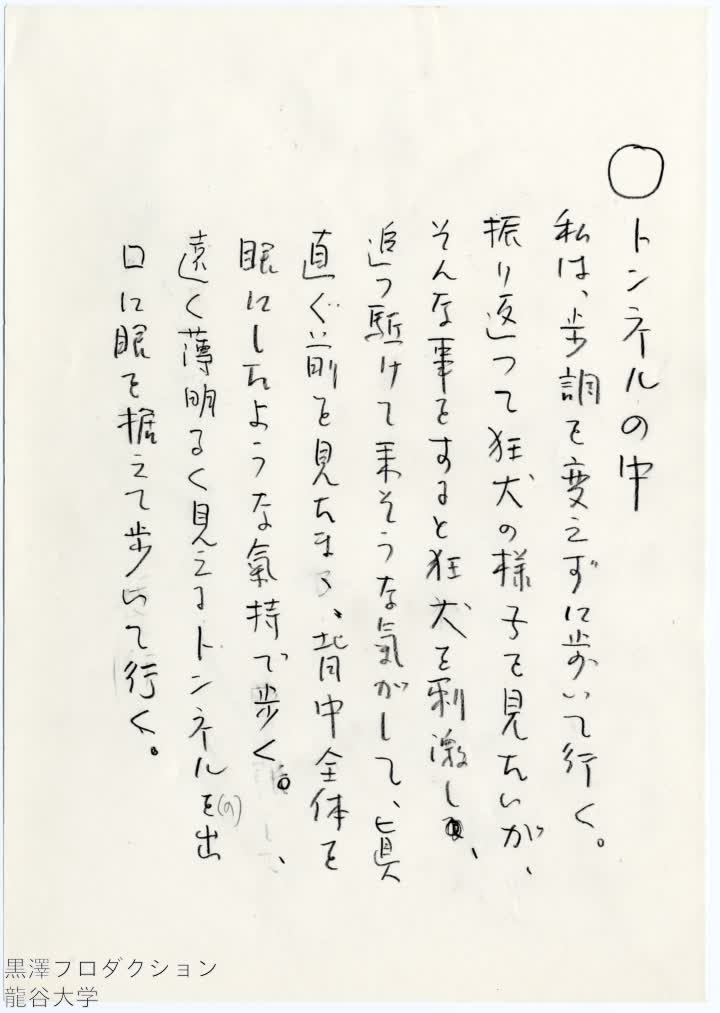 ○トンネルの中
私は、歩調を変えずに歩いて行く。
振り返つて狂犬の様子を見たいが、
そんな事をすると狂犬を刺激し、
追つ駈けて来そうな氣がして、眞
直ぐ前を見たまゝ、背中全体を
眼にしたような氣持で歩く。
遠く薄明るく見えるトンネルを(の)出
口に眼を据えて歩いて行く。
黒澤プロダクション
龍谷大学